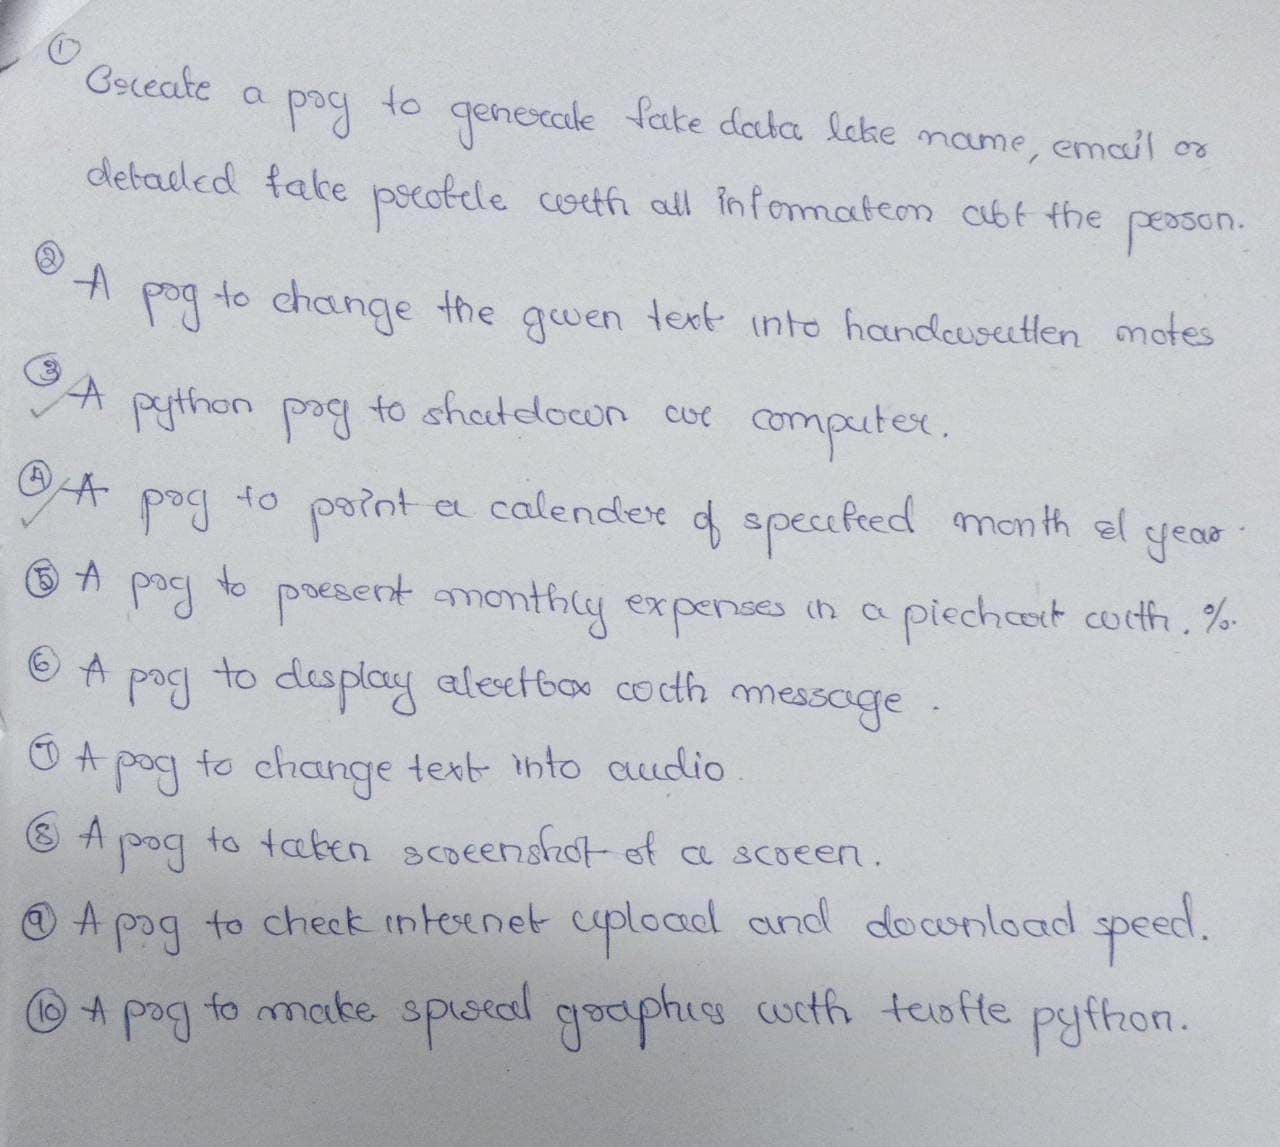 ① Create a prg to generate fake data like name, email or
detailed fake profile with all information abt the person.
② A prg to change the given text into handwritten notes
③ A python prg to shutdown our computer.
④ A prg to print a calender of specified month & year.
⑤ A prg to present monthly expenses in a piechart with. %.
⑥ A prg to display alertbox with message.
⑦ A prg to change text into audio.
⑧ A prg to taken screenshot of a screen.
⑨ A prg to check internet upload and download speed.
⑩ A prg to make spiral graphics with turtle python.